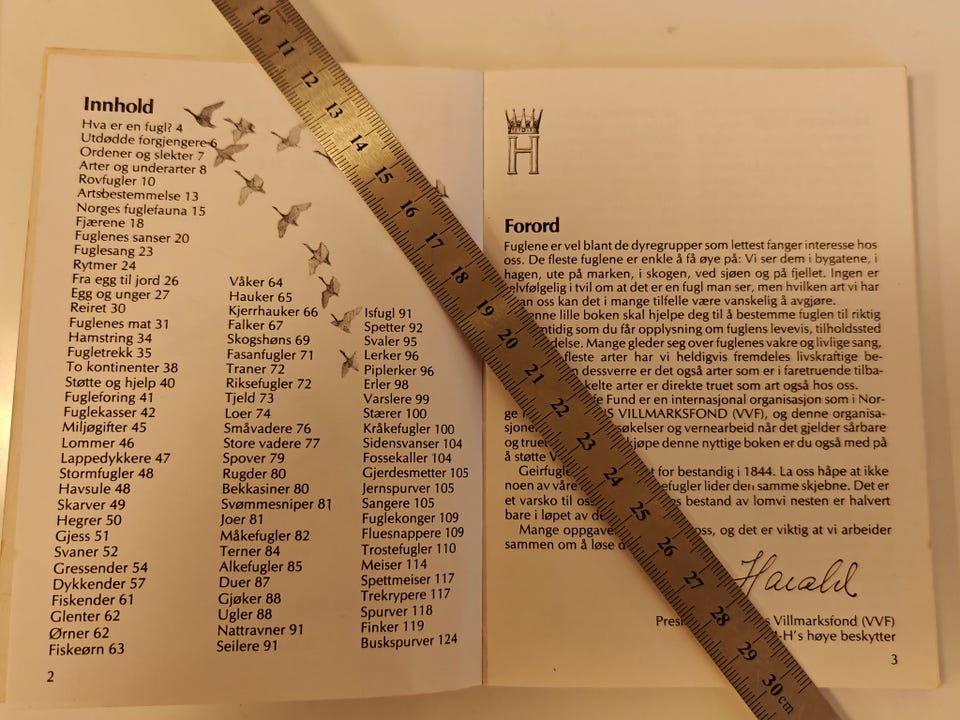 Innhold
Hva er en fugl? 4
Utdødde forgjengere 6
Ordener og slekter 7
Arter og underarter 8
Rovfugler 10
Artsbestemmelse 13
Norges fuglefauna 15
Fjærene 18
Fuglenes sanser 20
Fuglesang 23
Rytmer 24
Fra egg til jord 26
Egg og unger 27
Reiret 30
Fuglenes mat 31
Hamstring 34
Fugletrekk 35
To kontinenter 38
Støtte og hjelp 40
Fugleforing 41
Fuglekasser 42
Miljøgifter 45
Lommer 46
Lappedykkere 47
Stormfugler 48
Havsule 48
Skarver 49
Hegrer 50
Gjess 51
Svaner 52
Gressender 54
Dykkender 57
Fiskender 61
Glenter 62
Ørner 62
Fiskeørn 63
Våker 64
Hauker 65
Kjerrhauker 66
Falker 67
Skogshøns 69
Fasanfugler 71
Traner 72
Riksefugler 72
Tjeld 73
Loer 74
Småvadere 76
Store vadere 77
Spover 79
Rugder 80
Bekkasiner 80
Svømmesniper 81
Joer 81
Måkefugler 82
Terner 84
Alkefugler 85
Duer 87
Gjøker 88
Ugler 88
Nattravner 91
Seilere 91
Isfugl 91
Spetter 92
Svaler 95
Lerker 96
Piplerker 96
Erler 98
Varslere 99
Stærer 100
Kråkefugler 100
Sidensvanser 104
Fossekaller 104
Gjerdesmetter 105
Jernspurver 105
Sangere 105
Fuglekonger 109
Fluesnappere 109
Trostefugler 110
Meiser 114
Spettmeiser 117
Trekrypere 117
Spurver 118
Finker 119
Buskspurver 124
2
10 11 12 13 14 15 16 17 18 19 20 21 22 23 24 25 26 27 28 29 30 cm
H
Forord
Fuglene er vel blant de dyregrupper som lettest fanger interesse hos
oss. De fleste fuglene er enkle å få øye på: Vi ser dem i bygatene, i
hagen, ute på marken, i skogen, ved sjøen og på fjellet. Ingen er
elvfølgelig i tvil om at det er en fugl man ser, men hvilken art vi har
an oss kan det i mange tilfelle være vanskelig å avgjøre.
enne lille boken skal hjelpe deg til å bestemme fuglen til riktig
mtidig som du får opplysning om fuglens levevis, tilholdssted
delse. Mange gleder seg over fuglenes vakre og livlige sang,
fleste arter har vi heldigvis fremdeles livskraftige be-
dessverre er det også arter som er i faretruende tilba-
kelte arter er direkte truet som art også hos oss.
fe Fund er en internasjonal organisasjon som i Nor-
ge VILLMARKSFOND (VVF), og denne organisa-
sjone søkelser og vernearbeid når det gjelder sårbare
og truet kjøpe denne nyttige boken er du også med på
å støtte
Geirfugle t for bestandig i 1844. La oss håpe at ikke
noen av våre efugler lider den samme skjebne. Det er
et varsko til os s bestand av lomvi nesten er halvert
bare i løpet av de
Mange oppgave oss, og det er viktig at vi arbeider
sammen om å løse d
Harald
Presi s Villmarksfond (VVF)
H's høye beskytter
3